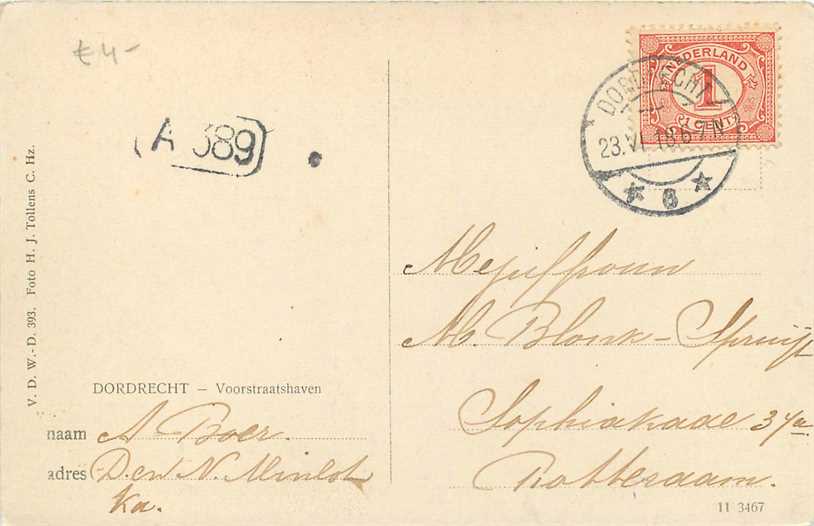 € 4-
A 389
NEDERLAND
1
1 CENT
DORDRECHT
23.VI.18.6-7N
6
V. D. W.-D. 393. Foto H. J. Tollens C. Hz.
Mejuffrouw
M. Blonk-Spruijt
Sophiakade 37a
Rotterdam.
DORDRECHT — Voorstraatshaven
naam A Boer.
adres Den N.
ka.
11 3467